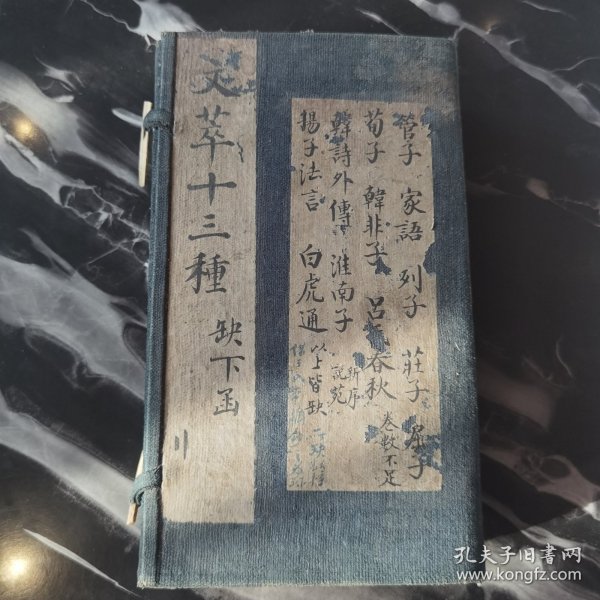 文萃十三種
缺下函
管子 家語 列子 莊子
荀子 韓非子 呂氏春秋 卷数不足
韓詩外傳 淮南子 説苑 新序
揚子法言 白虎通 以上皆缺
孔夫子旧书网
www.kongfz.com